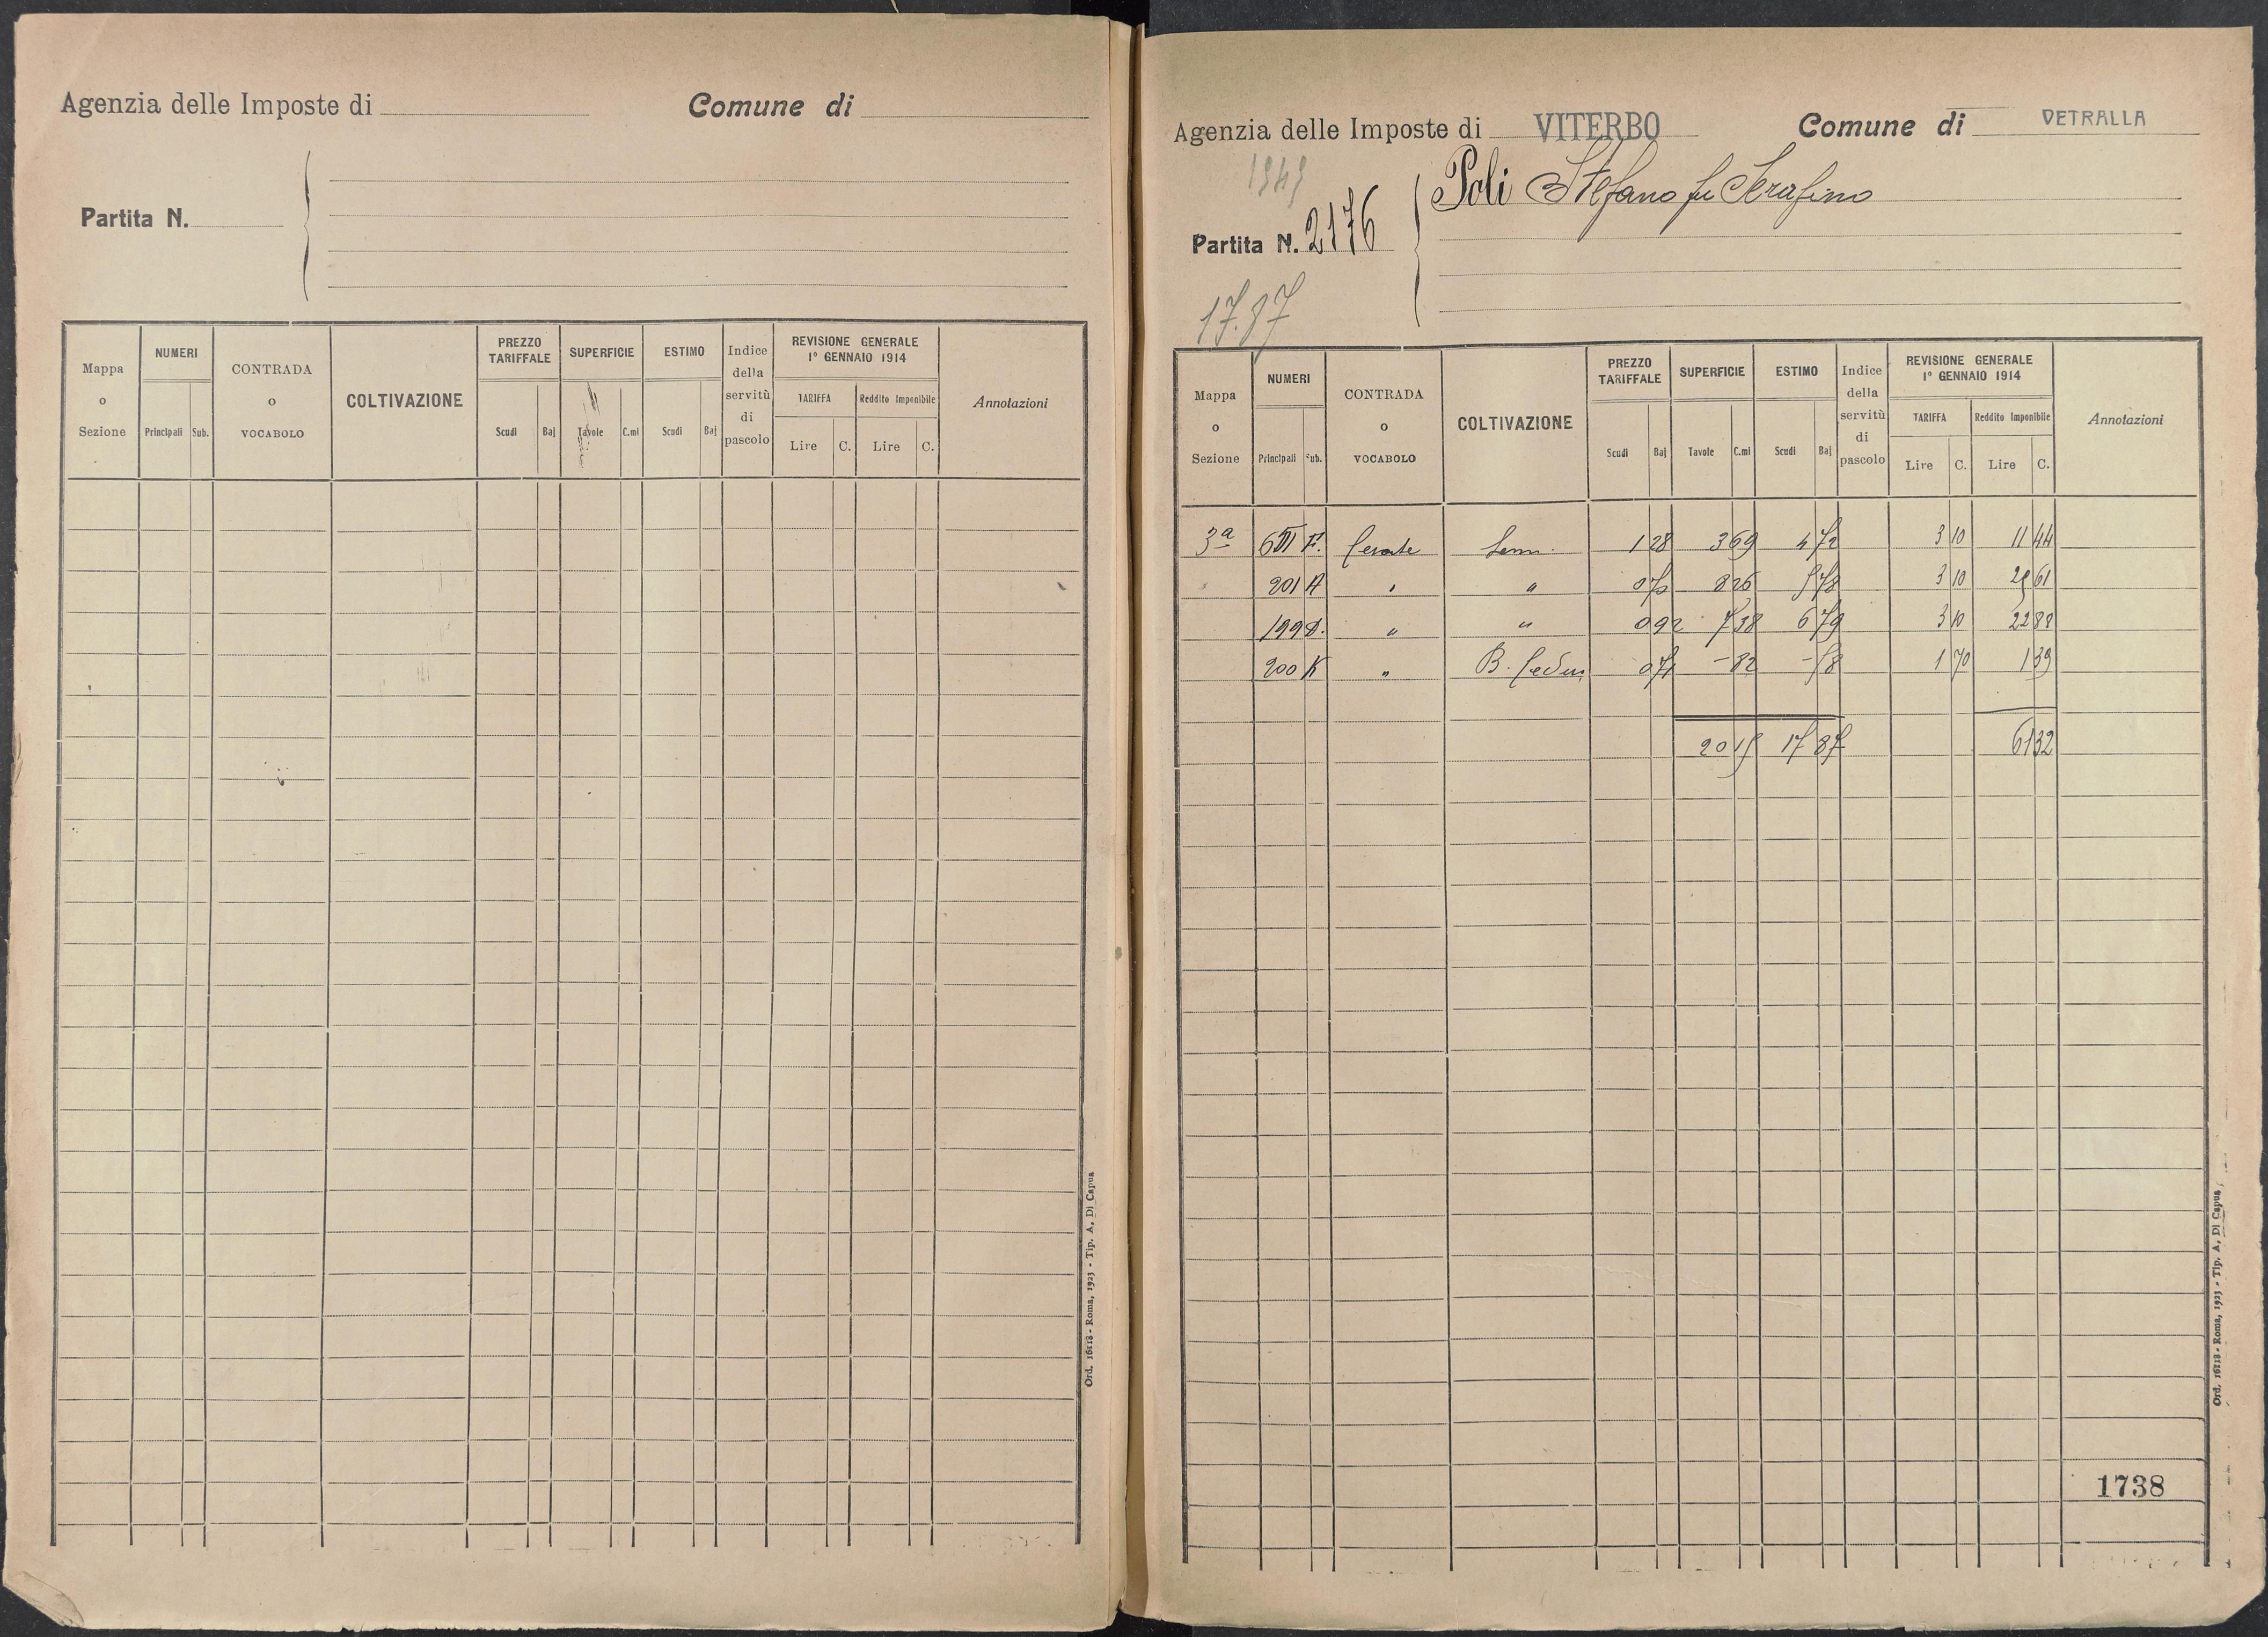 Agenzia delle Imposte di
Comune di
Partita N.
Mappa o Sezione
NUMERI
Principali Sub.
CONTRADA o VOCABOLO
COLTIVAZIONE
PREZZO TARIFFALE
Scudi Baj
SUPERFICIE
Tavole C.mi
ESTIMO
Scudi Baj
Indice della servitù di pascolo
REVISIONE GENERALE
1° GENNAIO 1914
TARIFFA Reddito Imponibile
Lire C. Lire C.
Annotazioni
Ord. 16118 - Roma, 1923 - Tip. A. Di Capua
Agenzia delle Imposte di VITERBO
Comune di VETRALLA
Partita N. 2176
Poli Stefano fu Serafino
17.87
Mappa o Sezione
NUMERI
Principali Sub.
CONTRADA o VOCABOLO
COLTIVAZIONE
PREZZO TARIFFALE
Scudi Baj
SUPERFICIE
Tavole C.mi
ESTIMO
Scudi Baj
Indice della servitù di pascolo
REVISIONE GENERALE
1° GENNAIO 1914
TARIFFA Reddito Imponibile
Lire C. Lire C.
Annotazioni
3ª Sem. 1 28 3 69 4 72 3 10 11 44
201 A " " 0 70 8 26 5 78 3 10 25 61
199 D. " " 0 92 7 38 6 79 3 10 22 88
200 K " B. Ceduo 0 71 - 82 - 58 1 70 1 39
20 15 17 87 61 32
1738
Ord. 16118 - Roma, 1923 - Tip. A. Di Capua